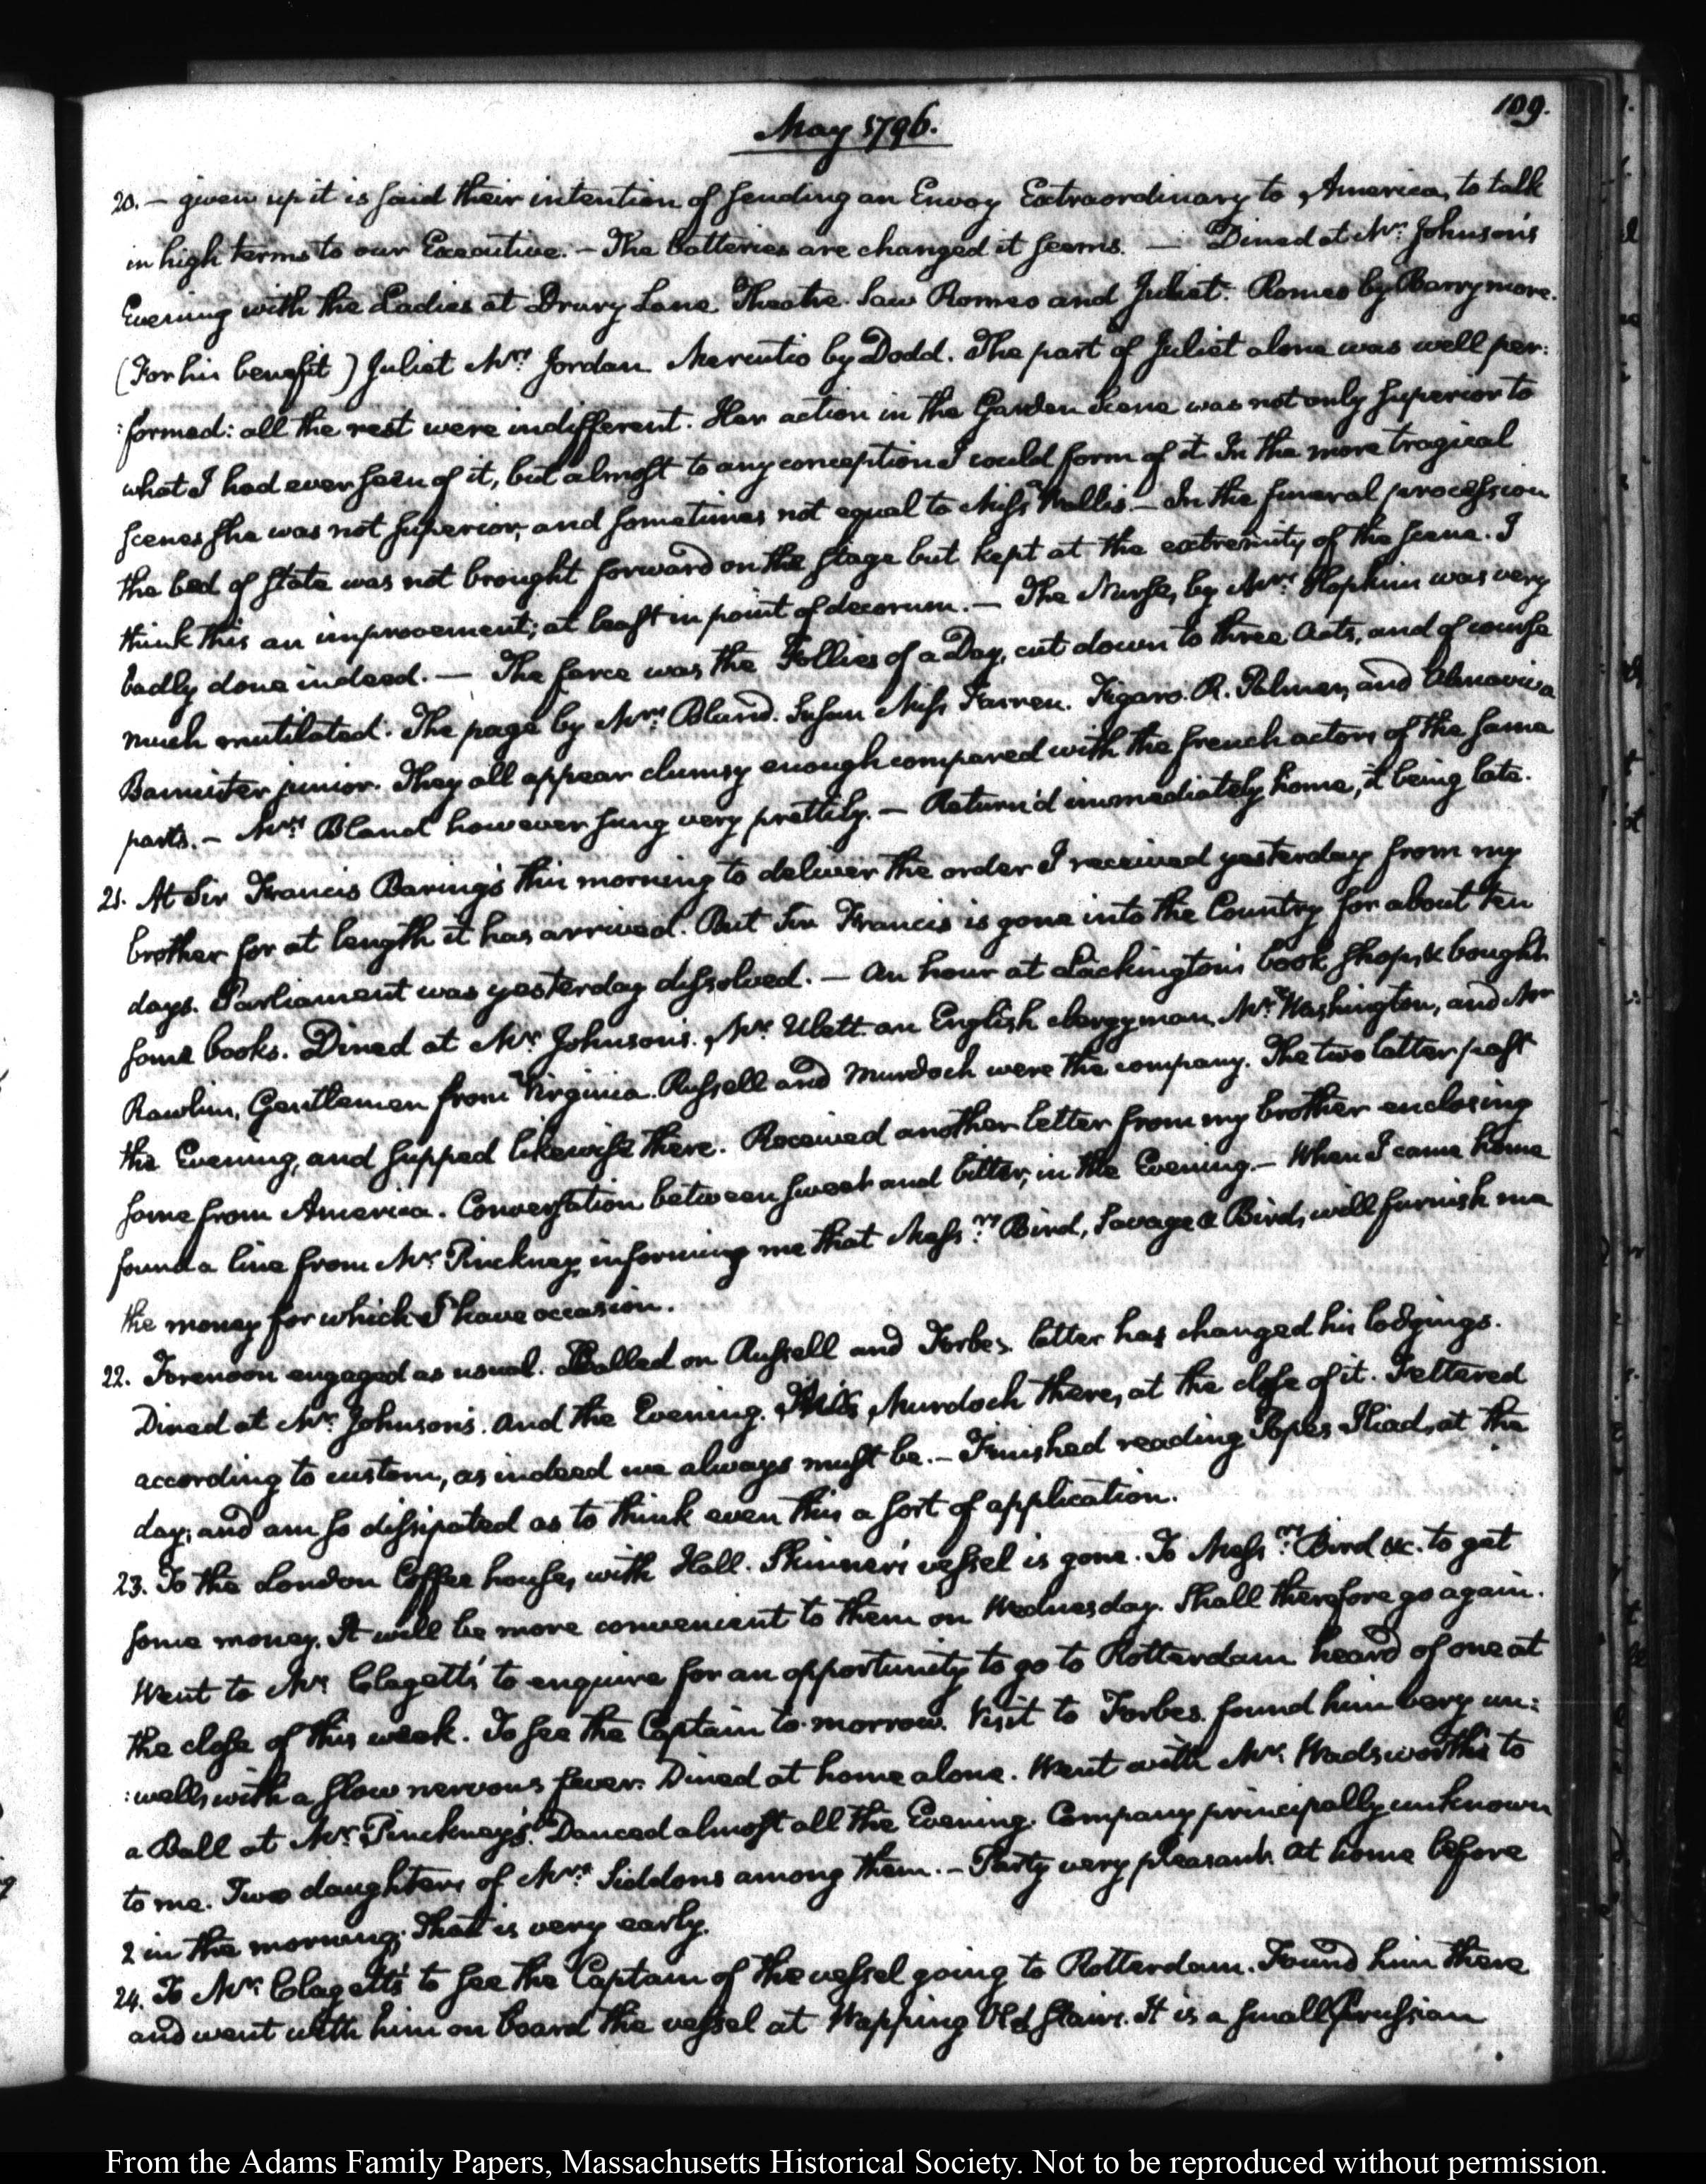 109.
May 1796.
20. – given up it is said their intention of sending an Envoy Extraordinary to America, to talk
in high terms to our Executive. – The batteries are changed it seems. — Dined at Mr: Johnson's
Evening with the Ladies at Drury Lane Theatre. Saw Romeo and Juliet. Romeo by Barrymore.
(For his benefit) Juliet Mrs: Jordan. Mercutio by Dodd. The part of Juliet alone was well per:
:formed: all the rest were indifferent. Her action in the Garden Scene was not only superior to
what I had ever seen of it, but almost to any conception I could form of it. In the more tragical
scenes she was not superior, and sometimes not equal to Miss Wallis. – In the funeral procession
the bed of state was not brought forward on the stage but kept at the extremity of the scene. I
think this an improvement; at least in point of decorum. – The Nurse, by Mrs: Hopkins was very
badly done indeed. — The farce was the Follies of a Day, cut down to three acts, and of course
much mutilated. The page by Mrs: Bland. Susan Miss Farren. Figaro. R. Palmer, and Almaviva
Bannister junior. They all appear clumsy enough compared with the french actors of the same
parts. – Mrs: Bland however sung very prettily. – Return'd immediately home, it being late.
21. At Sir Francis Baring's this morning to deliver the order I received yesterday from my
brother for at length it has arrived. But Sir Francis is gone into the Country for about ten
days. Parliament was yesterday dissolved. – An hour at Lackington's book shop, & bought
some books. Dined at Mr: Johnson's. Mr: Ulett an English clergyman, Mr: Washington, and Mr
Rawlins, Gentlemen from Virginia. Russell and Murdoch were the company. The two latter past
the Evening, and supped likewise there. Received another letter from my brother enclosing
some from America. Conversation between sweet and bitter, in the Evening. – When I came home
found a line from Mr: Pinckney, informing me that Messrs: Bird, Savage & Bird, will furnish me
the money for which I have occasion.
22. Forenoon engaged as usual. Called on Russell and Forbes. latter has changed his lodgings.
Dined at Mr: Johnson's. and the Evening. Murdoch there, at the close of it. Fettered
according to custom, as indeed we always must be. – Finished reading Popes Iliad, at the
day; and am so dissipated as to think even this a sort of application.
23. To the London Coffee house, with Hall. Skinner's vessel is gone. To Messrs: Bird &c. to get
some money. It will be more convenient to them on Wednesday. Shall therefore go again.
Went to Mr: Clagett's to enquire for an opportunity to go to Rotterdam heard of one at
the close of this week. To see the Captain to-morrow. Visit to Forbes. found him very un:
:well, with a slow nervous fever. Dined at home alone. Went with Mr: Wadsworth's to
a Ball at Mr: Pinckney's. Danced almost all the Evening. Company principally unknown
to me. Two daughters of Mrs: Siddons among them. – Party very pleasant. At home before
2 in the morning; That is very early.
24. To Mr: Clagett's to see the Captain of the vessel going to Rotterdam. Found him there
and went with him on board the vessel at Wapping Old Stairs. It is a small Prussian
From the Adams Family Papers, Massachusetts Historical Society. Not to be reproduced without permission.